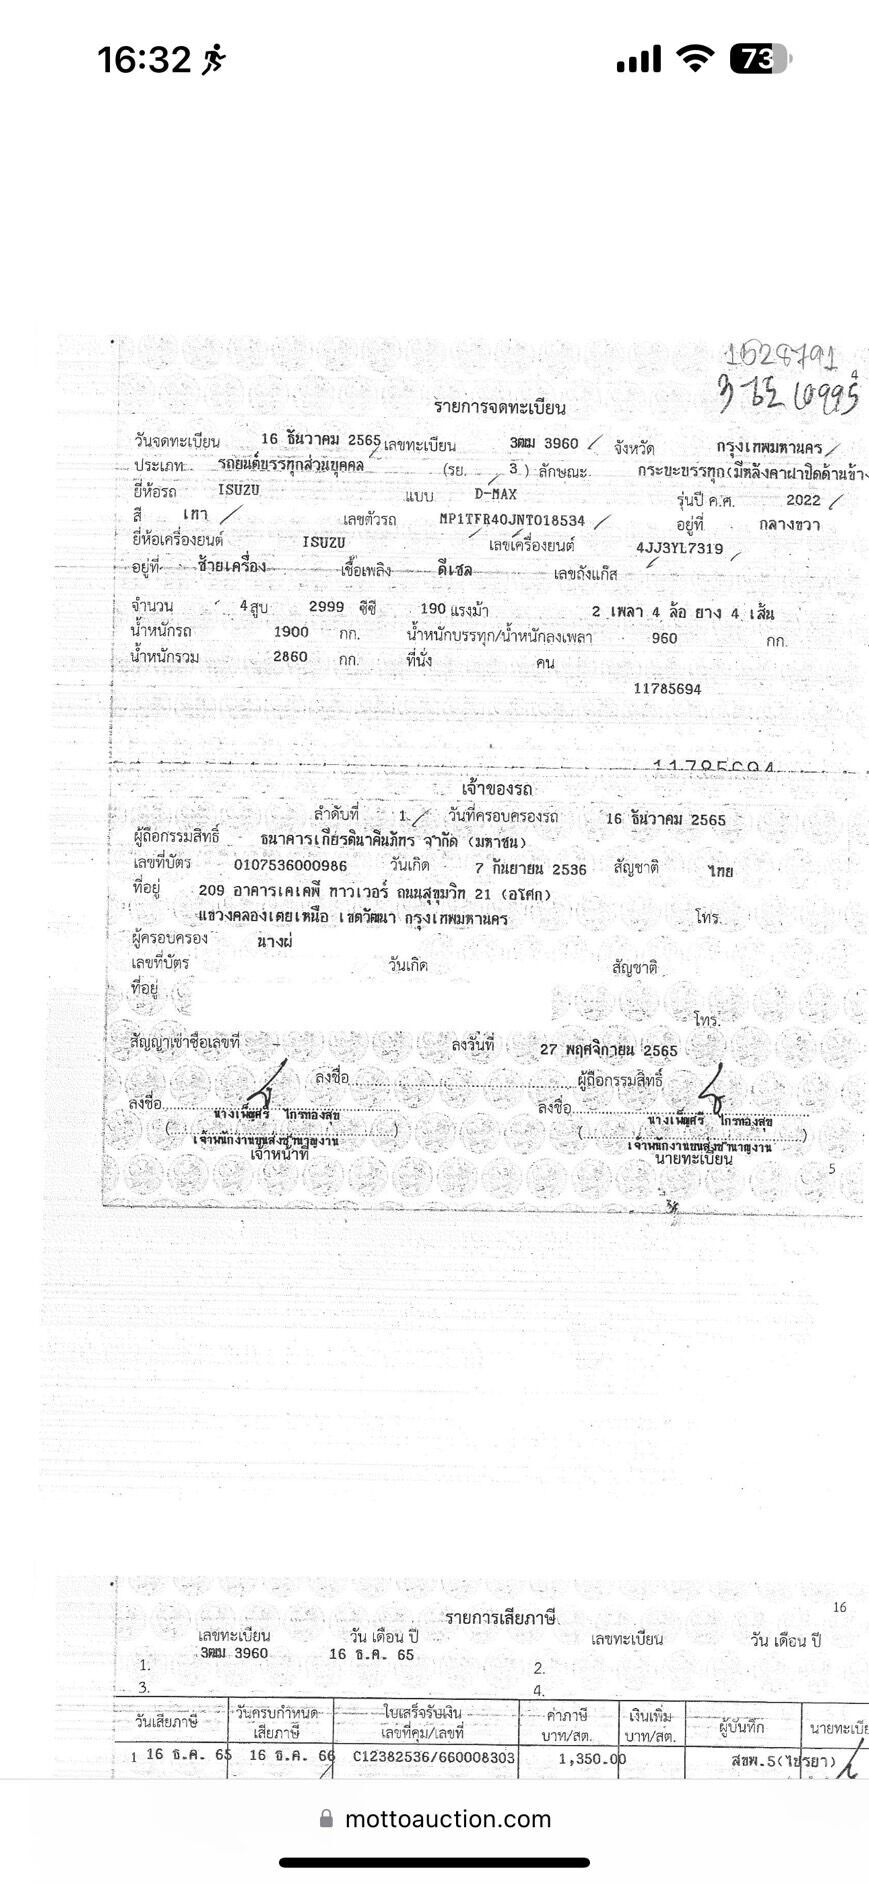 16:32
73
1628791
4
รายการจดทะเบียน
วันจดทะเบียน 16 ธันวาคม 2565 เลขทะเบียน 3ฒฒ 3960 จังหวัด กรุงเทพมหานคร
ประเภท รถยนต์บรรทุกส่วนบุคคล (รย. 3 ) ลักษณะ กระบะบรรทุก(มีหลังคาฝาปิดด้านข้าง
ยี่ห้อรถ ISUZU แบบ D-MAX รุ่นปี ค.ศ. 2022
สี เทา เลขตัวรถ MP1TFR40JNT018534 อยู่ที่ กลางขวา
ยี่ห้อเครื่องยนต์ ISUZU เลขเครื่องยนต์ 4JJ3YL7319
อยู่ที่ ซ้ายเครื่อง เชื้อเพลิง ดีเซล เลขถังแก๊ส
จำนวน 4 สูบ 2999 ซีซี 190 แรงม้า 2 เพลา 4 ล้อ ยาง 4 เส้น
น้ำหนักรถ 1900 กก. น้ำหนักบรรทุก/น้ำหนักลงเพลา 960 กก.
น้ำหนักรวม 2860 กก. ที่นั่ง คน
11785694
11785694
เจ้าของรถ
ลำดับที่ 1 วันที่ครอบครองรถ 16 ธันวาคม 2565
ผู้ถือกรรมสิทธิ์ ธนาคารเกียรตินาคินภัทร จำกัด (มหาชน)
เลขที่บัตร 0107536000986 วันเกิด 7 กันยายน 2536 สัญชาติ ไทย
ที่อยู่ 209 อาคารเคเคพี ทาวเวอร์ ถนนสุขุมวิท 21 (อโศก)
แขวงคลองเตยเหนือ เขตวัฒนา กรุงเทพมหานคร โทร.
ผู้ครอบครอง นางผ่
เลขที่บัตร วันเกิด สัญชาติ
ที่อยู่
โทร.
สัญญาเช่าซื้อเลขที่ - ลงวันที่ 27 พฤศจิกายน 2565
ลงชื่อ ผู้ถือกรรมสิทธิ์
ลงชื่อ ลงชื่อ
( นางเพ็ญศรี ไกรทองสุข ) ( นางเพ็ญศรี ไกรทองสุข )
เจ้าพนักงานขนส่งชำนาญงาน เจ้าพนักงานขนส่งชำนาญงาน
เจ้าหน้าที่ นายทะเบียน
5
16
รายการเสียภาษี
เลขทะเบียน วัน เดือน ปี เลขทะเบียน วัน เดือน ปี
1. 3ฒฒ 3960 16 ธ.ค. 65 2.
3. 4.
วันเสียภาษี วันครบกำหนดเสียภาษี ใบเสร็จรับเงิน เลขที่คุม/เลขที่ ค่าภาษี บาท/สต. เงินเพิ่ม บาท/สต. ผู้บันทึก นายทะเบี
1 16 ธ.ค. 65 16 ธ.ค. 66 C12382536/660008303 1,350.00 สขพ.5(ไชรยา)
mottoauction.com